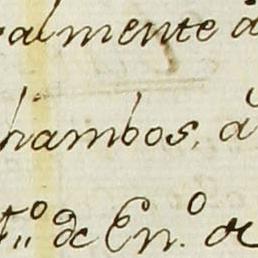 almente a
hambos, a
4º de En.º de